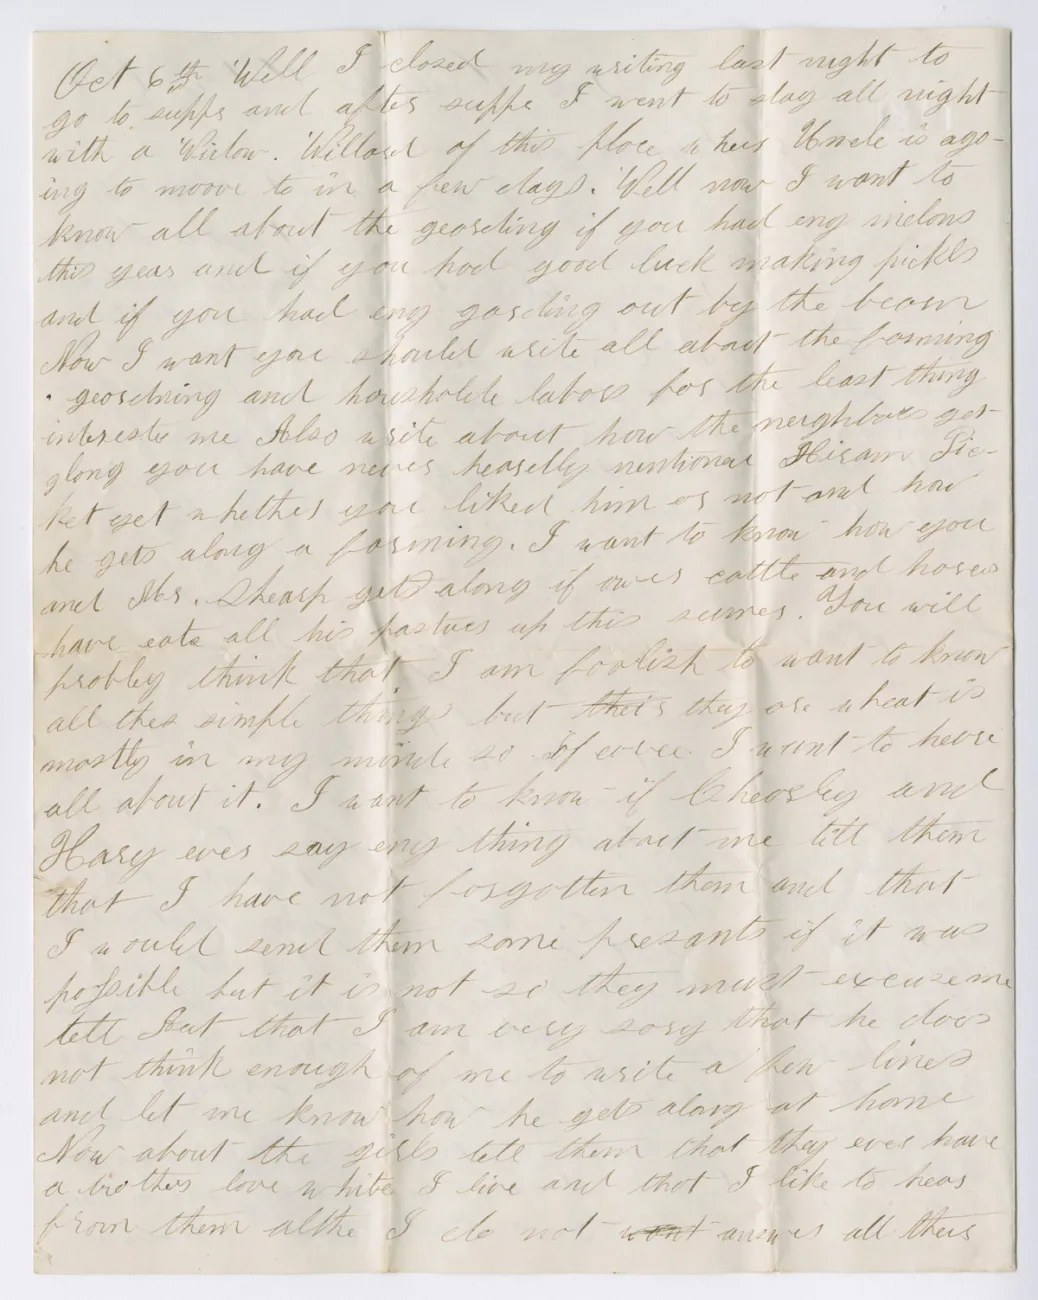 Oct 6th Well I closed my writing last night to
go to supper and after supper I went to stay all night
with a Widow. Willard of this place where Uncle is ago-
ing to moove to in a few days. Well now I want to
know all about the geardding if you had eny melons
this year and if you had good luck making pickls
and if you had eny garding out by the bearn
Now I want you should write all about the farming
geardning and housholde labors for the least thing
interests me Also write about how the neighbors get
glong you have never hearselly mentioned Hiram Pic-
ket yet whether you liked him or not and how
he gets along a farming. I want to know how you
and Mrs. Shearp gets along if ower cattle and horses
have eate all his pastures up this sumer. You will
probley think that I am foolish to want to know
all thes simple things but theirs they are wheat is
mostly in my minde so of corce I want to heare
all about it. I want to know if Chearley and
Hary ever say eny thing about me tell them
that I have not forgotten them and that
I would send them some presants if it was
possible but it is not so they must excuse me
tell that I am very sory that he does
not think enough of me to write a few lines
and let me know how he gets along at home
Now about the girls tell them that they ever have
a brothers love while I live and that I like to hear
from them altho I do not want answer all theirs